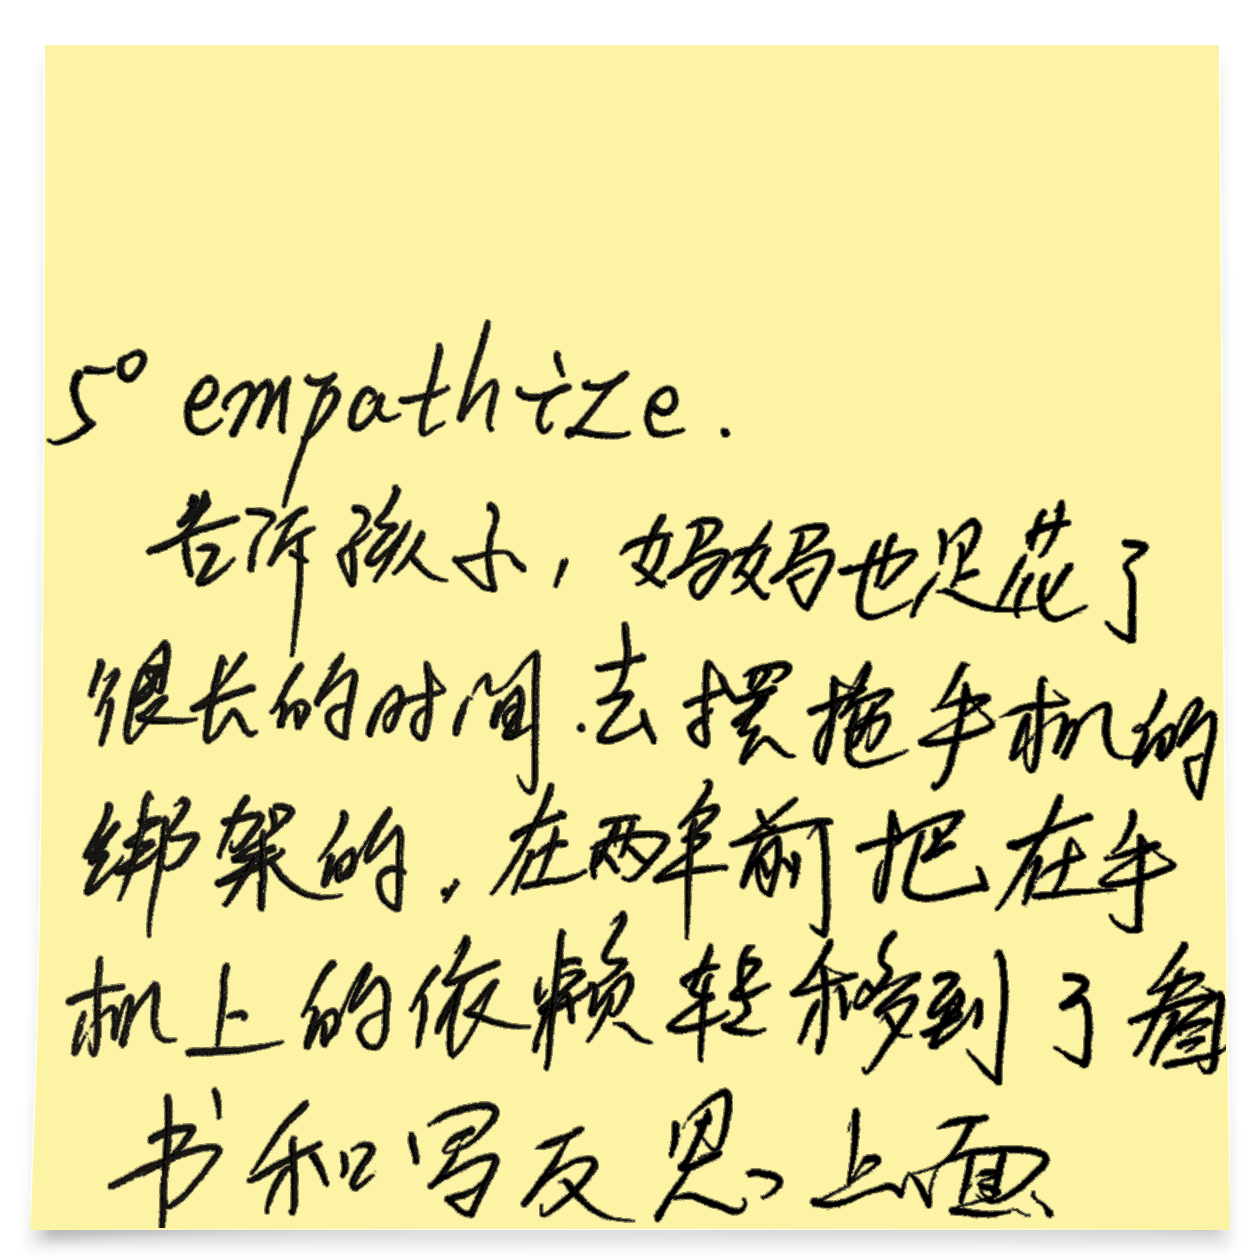 5° empathize.
告诉孩子，妈妈也是花了
很长的时间.去摆拖手机的
绑架的.在两年前把在手
机上的依赖转移到了看
书和写反思上面